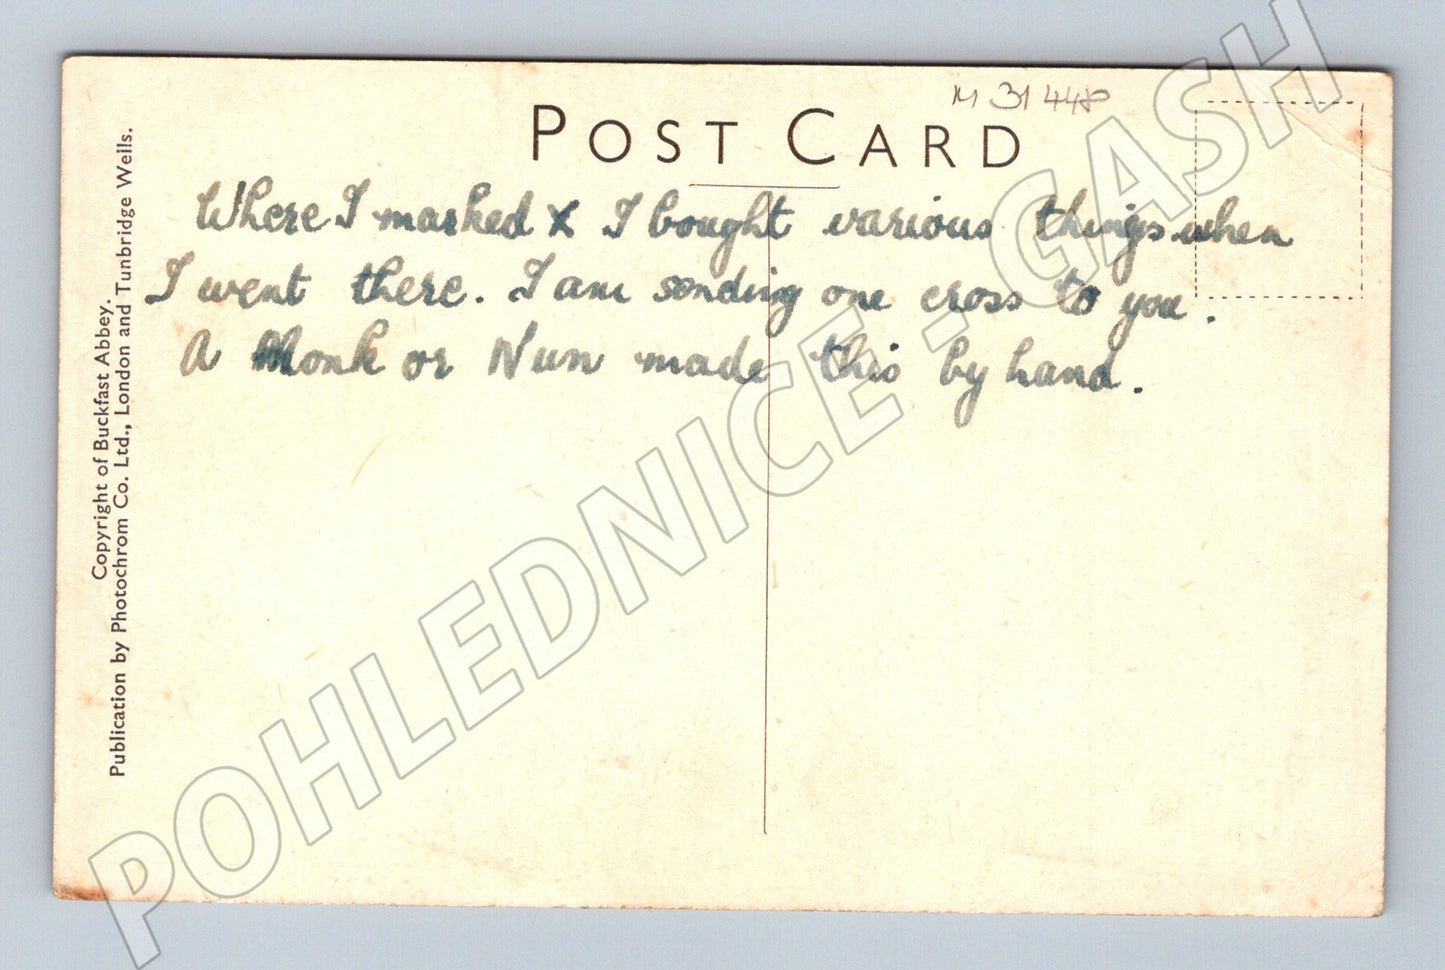 M 31 448
POST CARD
Where I marked x I bought various things when
I went there. I am sending one cross to you.
A Monk or Nun made this by hand.
Copyright of Buckfast Abbey.
Publication by Photochrom Co. Ltd., London and Tunbridge Wells.
POHLEDNICE - GASH